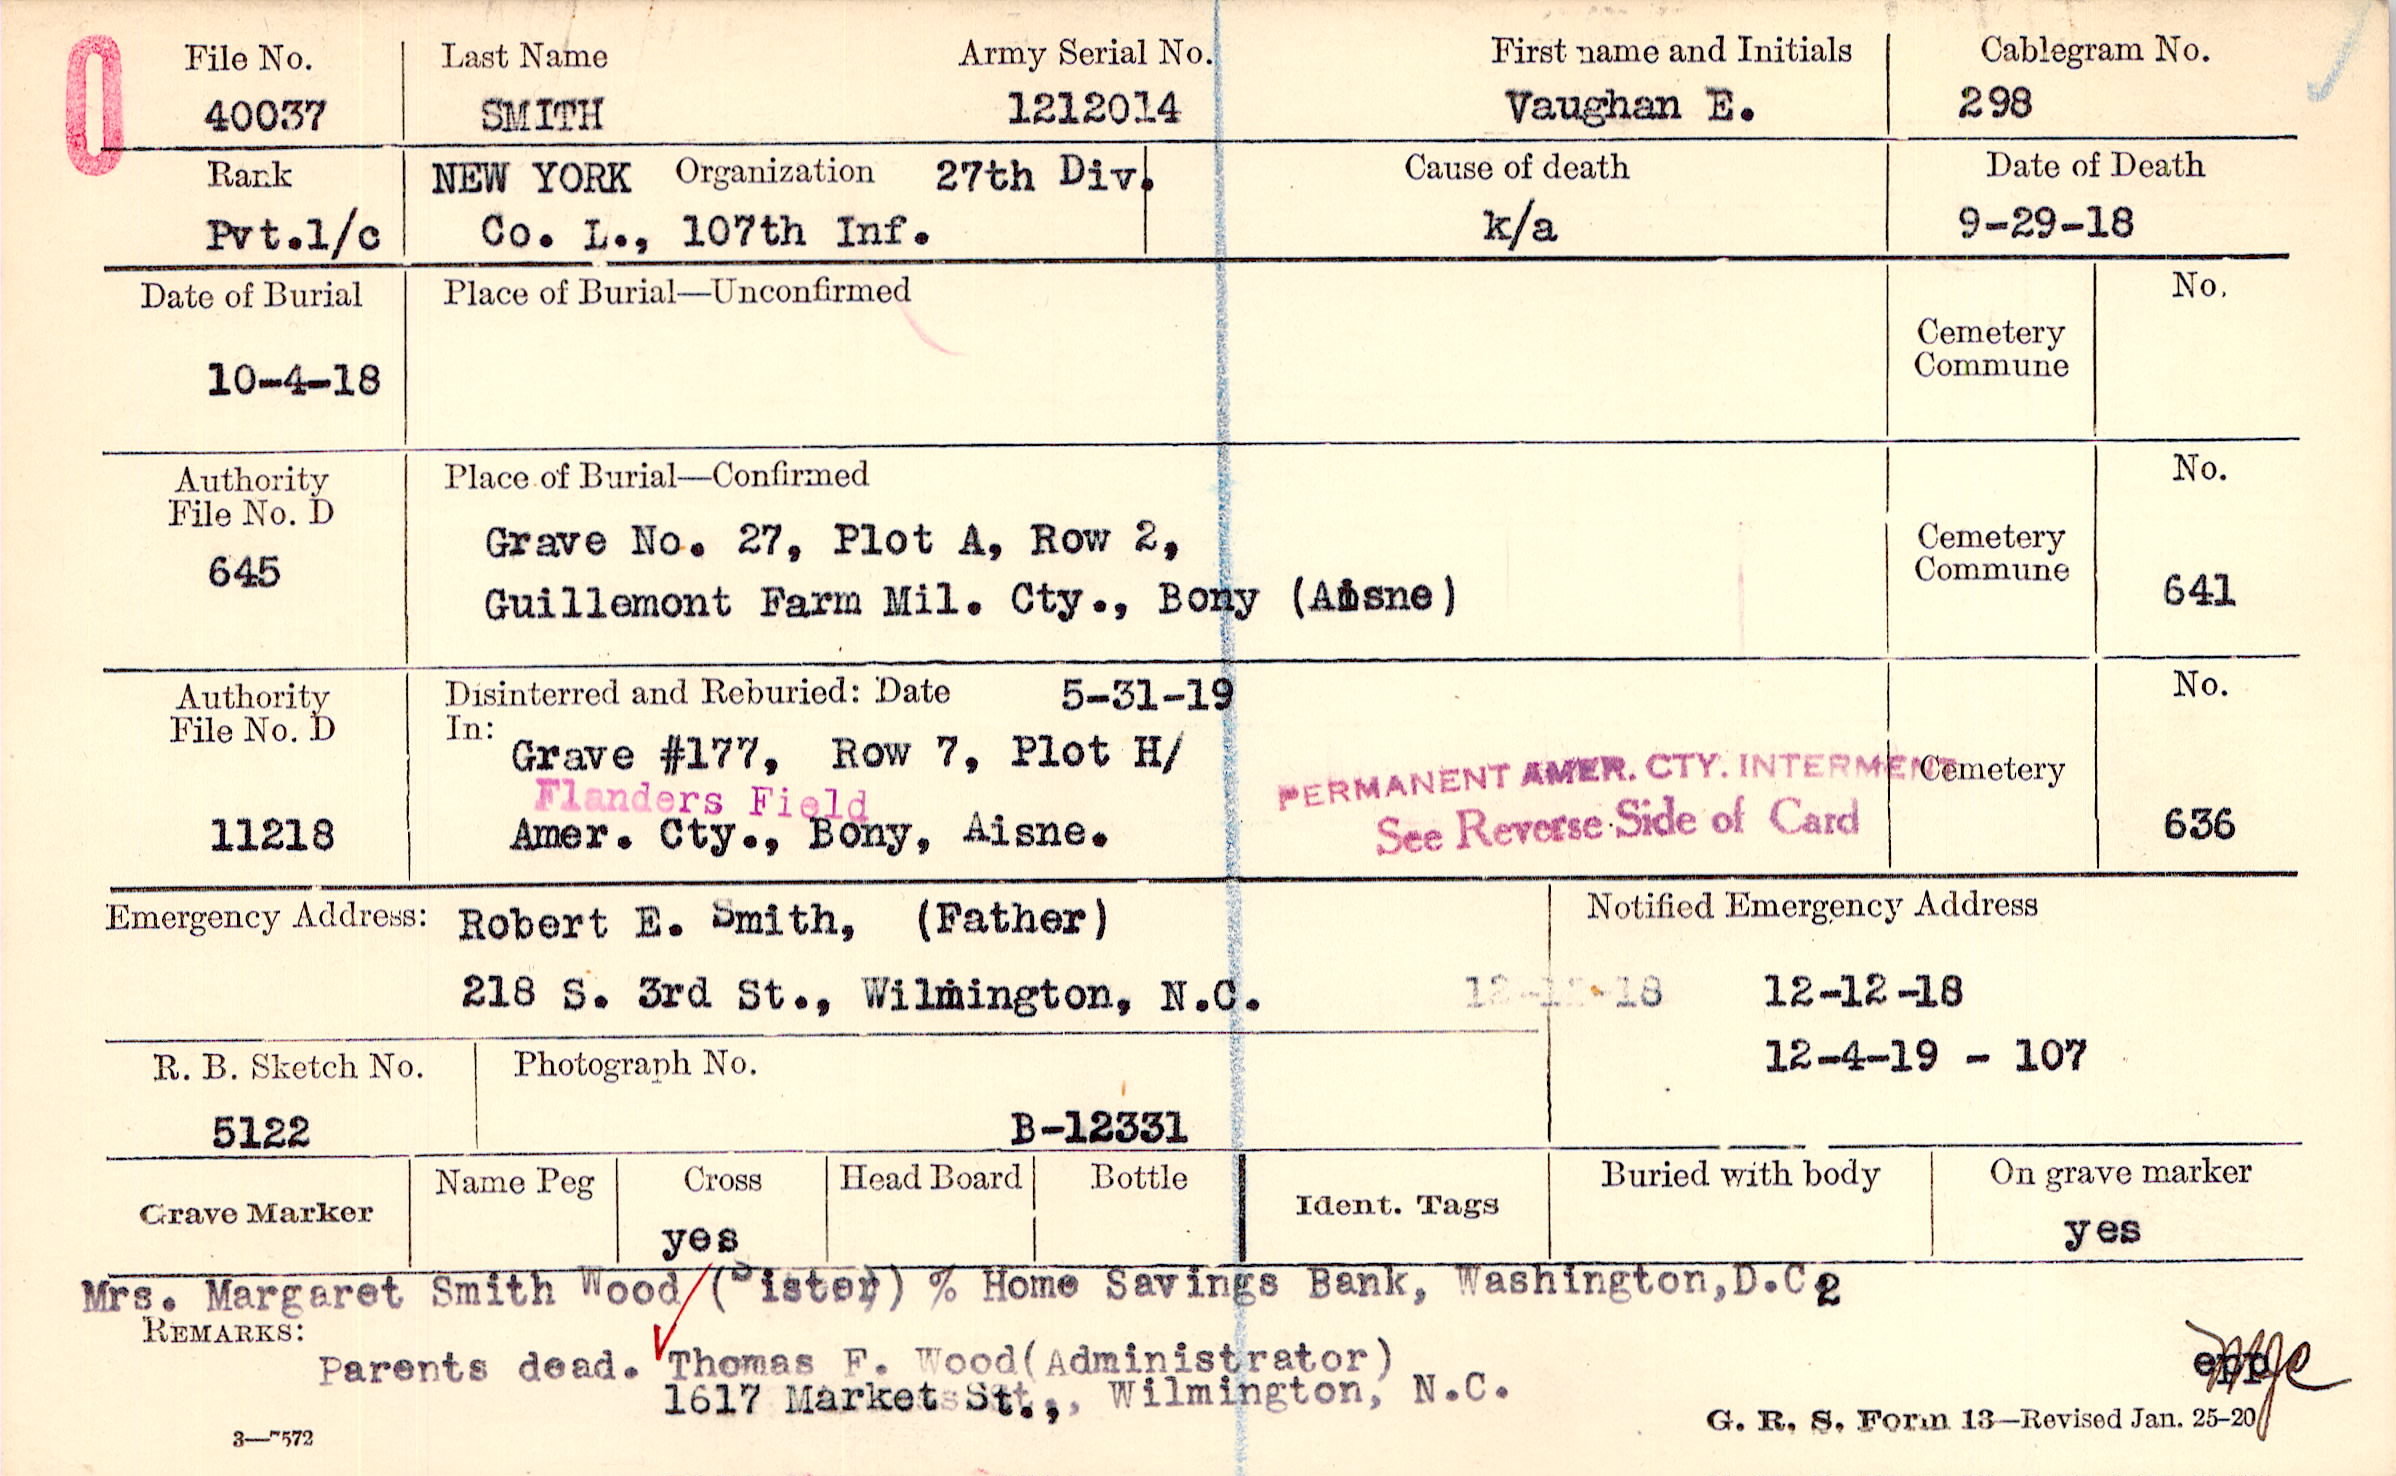 File No. Last Name Army Serial No. First name and Initials Cablegram No.
40037 SMITH 1212014 Vaughan E. 298
Rank NEW YORK Organization 27th Div. Cause of death Date of Death
Pvt.1/c Co. L., 107th Inf. k/a 9-29-18
Date of Burial Place of Burial—Unconfirmed No.
Cemetery
Commune
10-4-18
Authority Place of Burial—Confirmed No.
File No. D
Grave No. 27, Plot A, Row 2, Cemetery
645 Commune
Guillemont Farm Mil. Cty., Bony (Aisne) 641
Authority Disinterred and Reburied: Date 5-31-19 No.
File No. D In:
Grave #177, Row 7, Plot H/
PERMANENT AMER. CTY. INTERMENT Cemetery
Flanders Field
See Reverse Side of Card
11218 Amer. Cty., Bony, Aisne. 636
Emergency Address: Robert E. Smith, (Father) Notified Emergency Address
218 S. 3rd St., Wilmington, N.C. 12-12-18 12-12-18
12-4-19 - 107
R. B. Sketch No. Photograph No.
5122 B-12331
Grave Marker Name Peg Cross Head Board Bottle Ident. Tags Buried with body On grave marker
yes yes
Mrs. Margaret Smith Wood (Sister) % Home Savings Bank, Washington,D.C.
REMARKS:
Parents dead. Thomas F. Wood(Administrator)
1617 Market St., Wilmington, N.C.
3—7572 G. R. S. Form 13—Revised Jan. 25-20